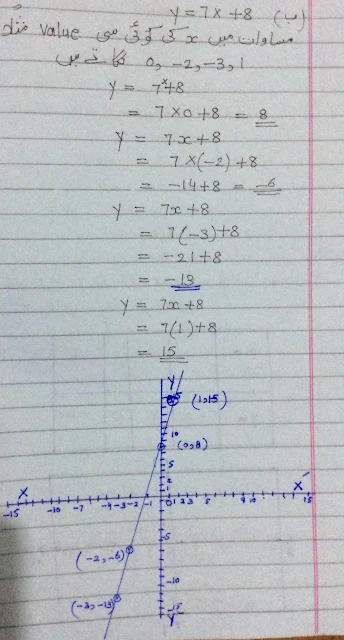 (ب) y = 7x + 8
مساوات میں x کی کوئی سی value مثلاً
0, -2, -3, 1
y = 7x+8
= 7 x 0 + 8 = 8
y = 7x + 8
= 7 x (-2) + 8
= -14+8 = -6
y = 7x + 8
= 7(-3)+8
= -21+8
= -13
y = 7x + 8
= 7(1)+8
= 15
y
(1,15)
10
(0,8)
5
2
1
X X'
-15 -10 -7 -4 -3 -2 -1 0 1 2 3 5 9 10 15
-5
(-2,-6)
-10
(-3,-13)
-15
y'